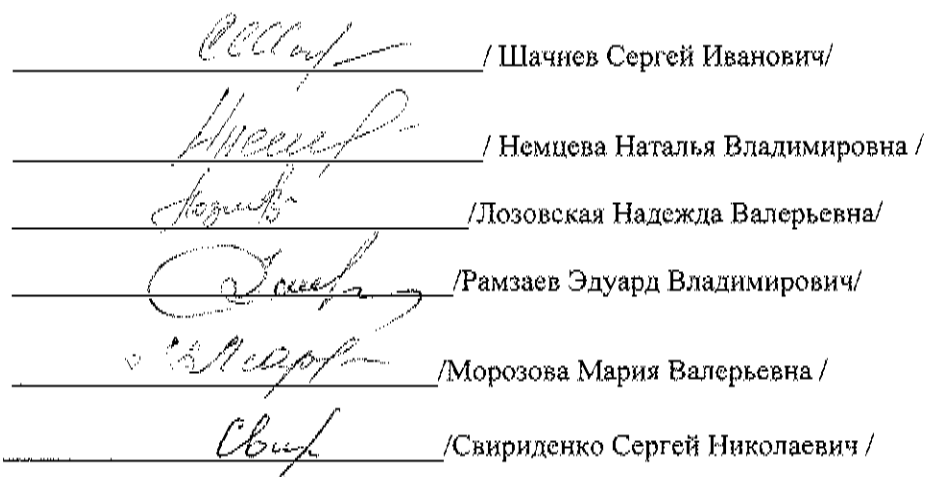 / Шачнев Сергей Иванович/
/ Немцева Наталья Владимировна /
/Лозовская Надежда Валерьевна/
/Рамзаев Эдуард Владимирович/
/Морозова Мария Валерьевна /
/Свириденко Сергей Николаевич /